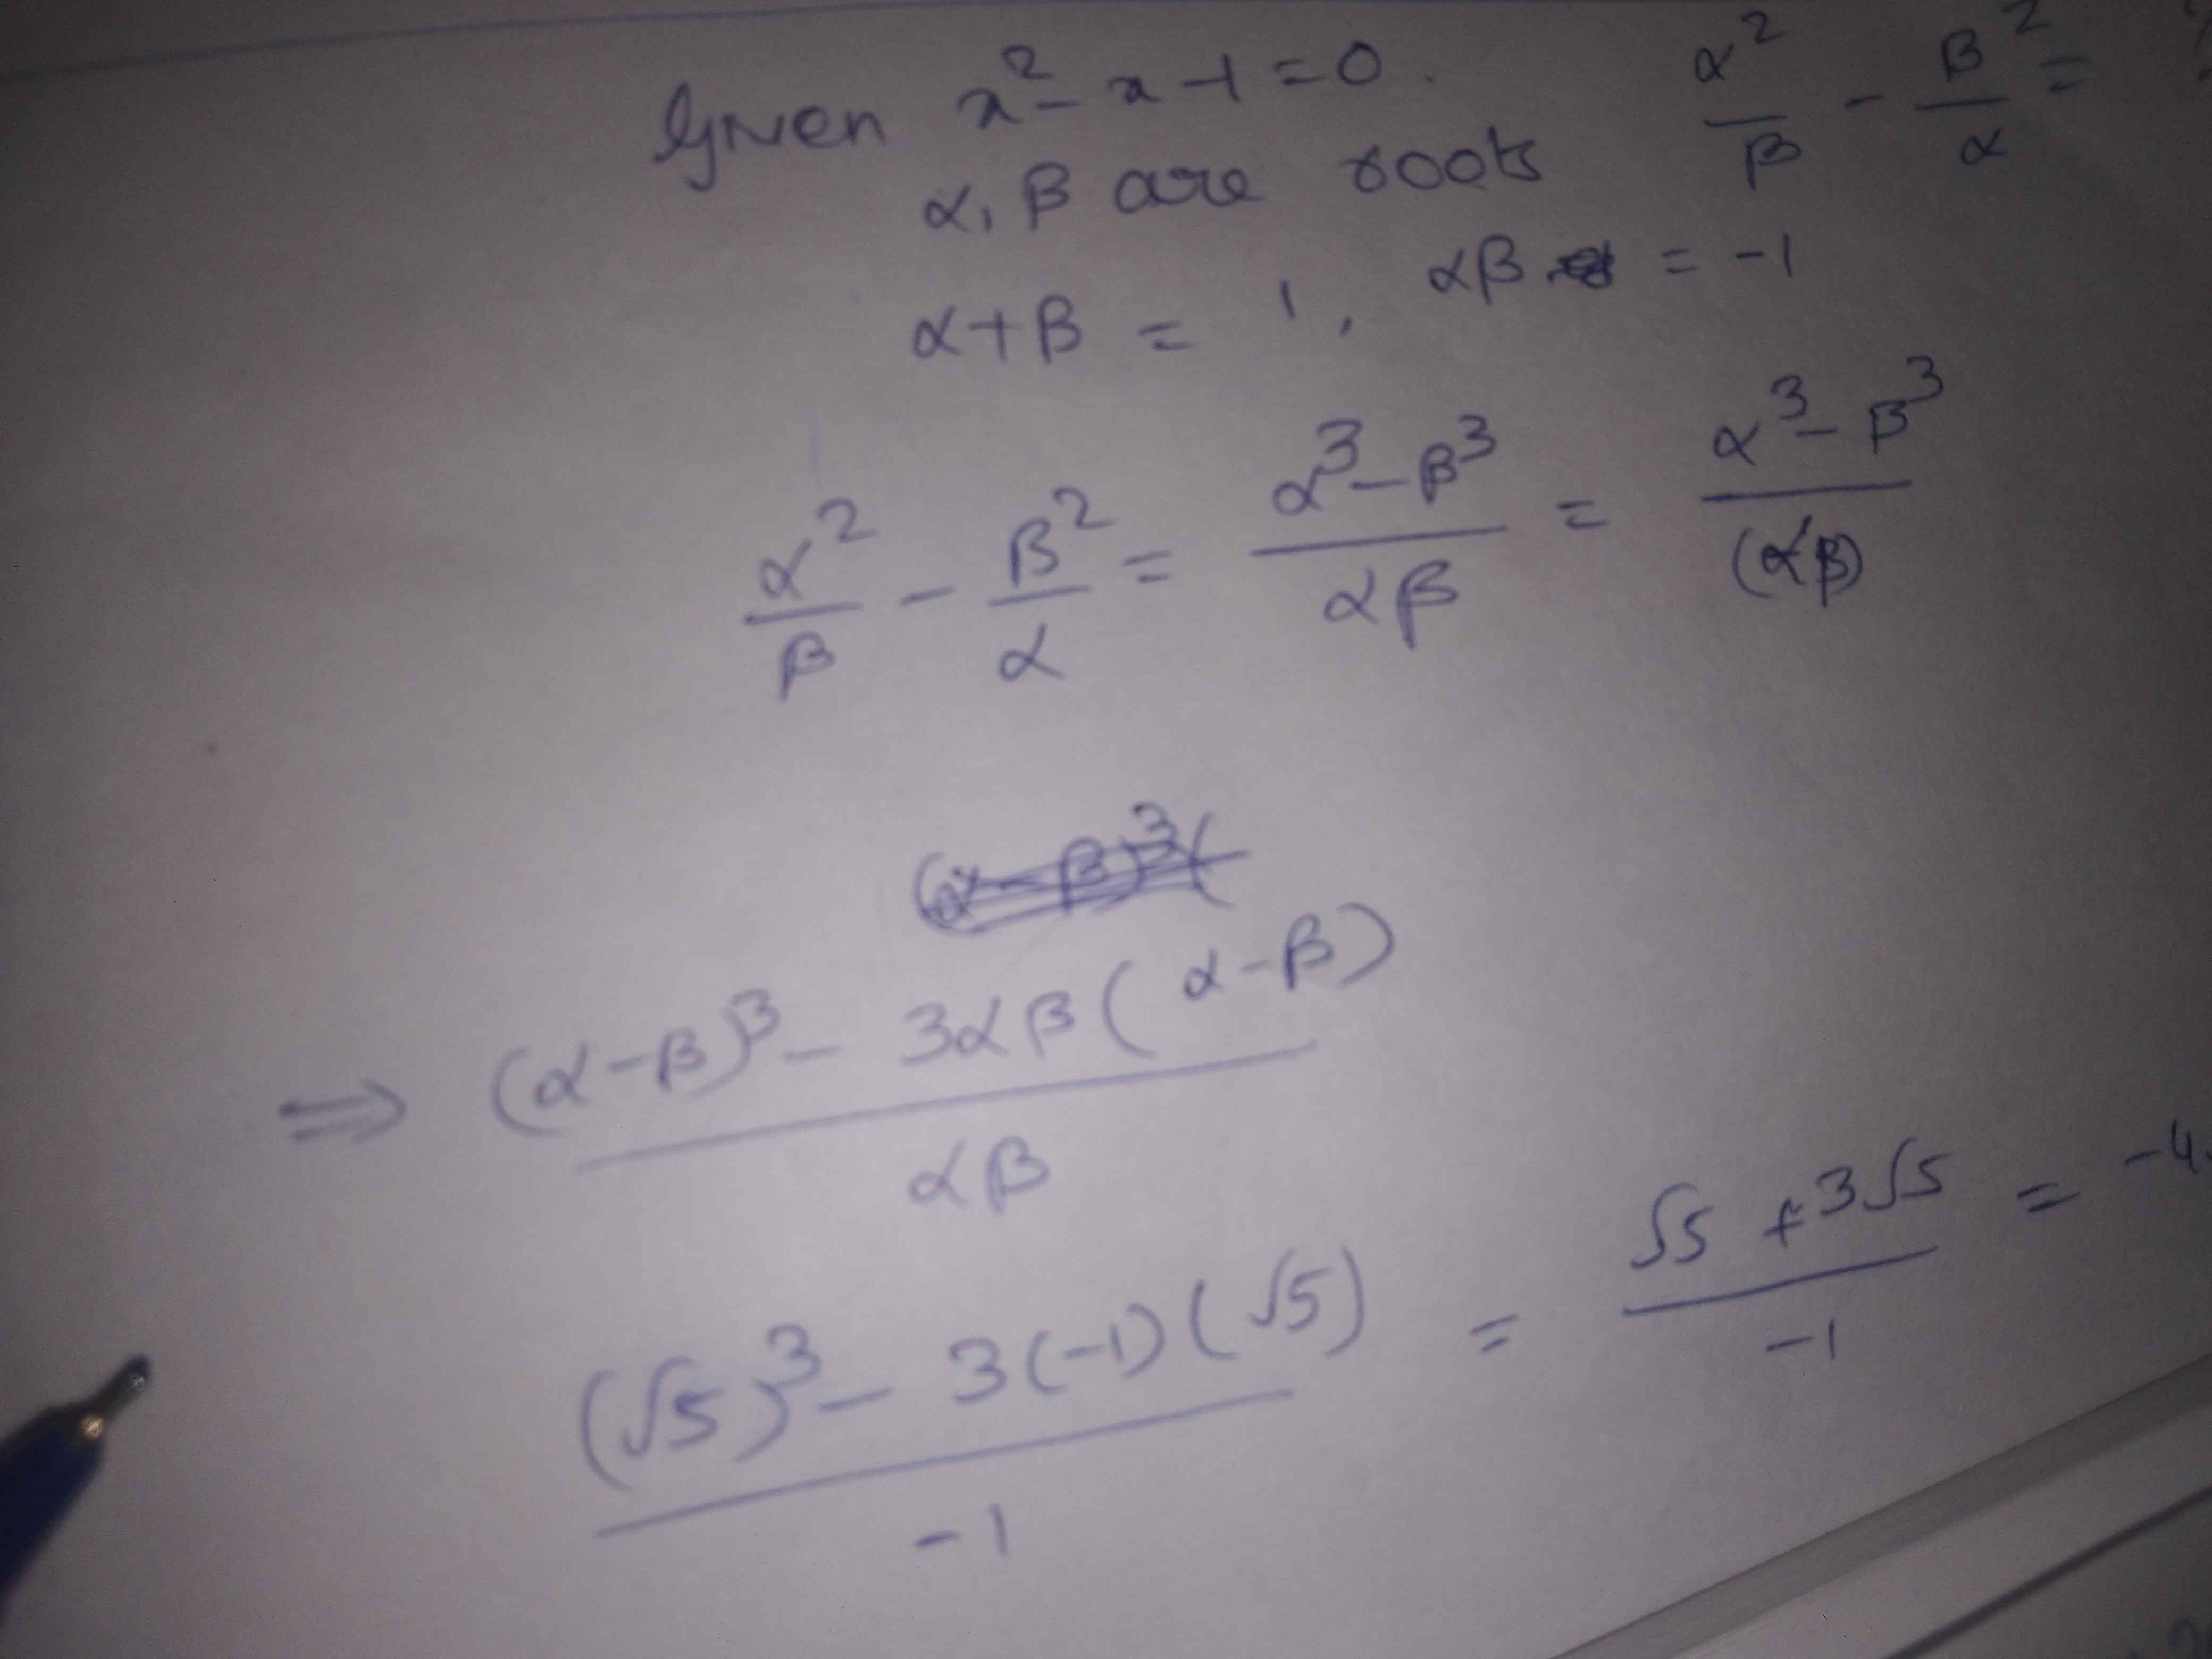 Given x² - x - 1 = 0. α²/β - β²/α = ?
α, β are roots
α + β = 1, αβ = -1
α²/β - β²/α = (α³ - β³)/(αβ) = (α³ - β³)/(αβ)
⇒ ((α - β)³ - 3αβ(α - β))/(αβ)
((√5)³ - 3(-1)(√5))/(-1) = (√5 + 3√5)/(-1) = -4